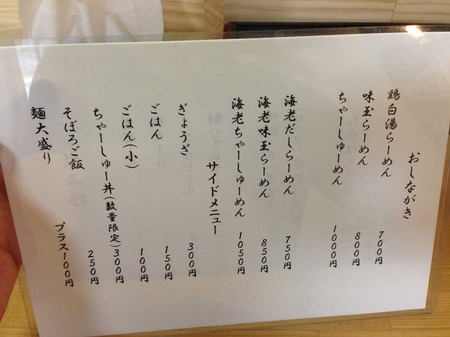 おしながき
鶏白湯らーめん 700円
味玉らーめん 800円
ちゃーしゅーめん 1000円
海老だしらーめん 750円
海老味玉らーめん 850円
海老ちゃーしゅーめん 1050円
サイドメニュー
ぎょうざ 300円
ごはん 150円
ごはん(小) 100円
ちゃーしゅー丼(数量限定) 300円
そぼろご飯 250円
麺大盛り プラス100円